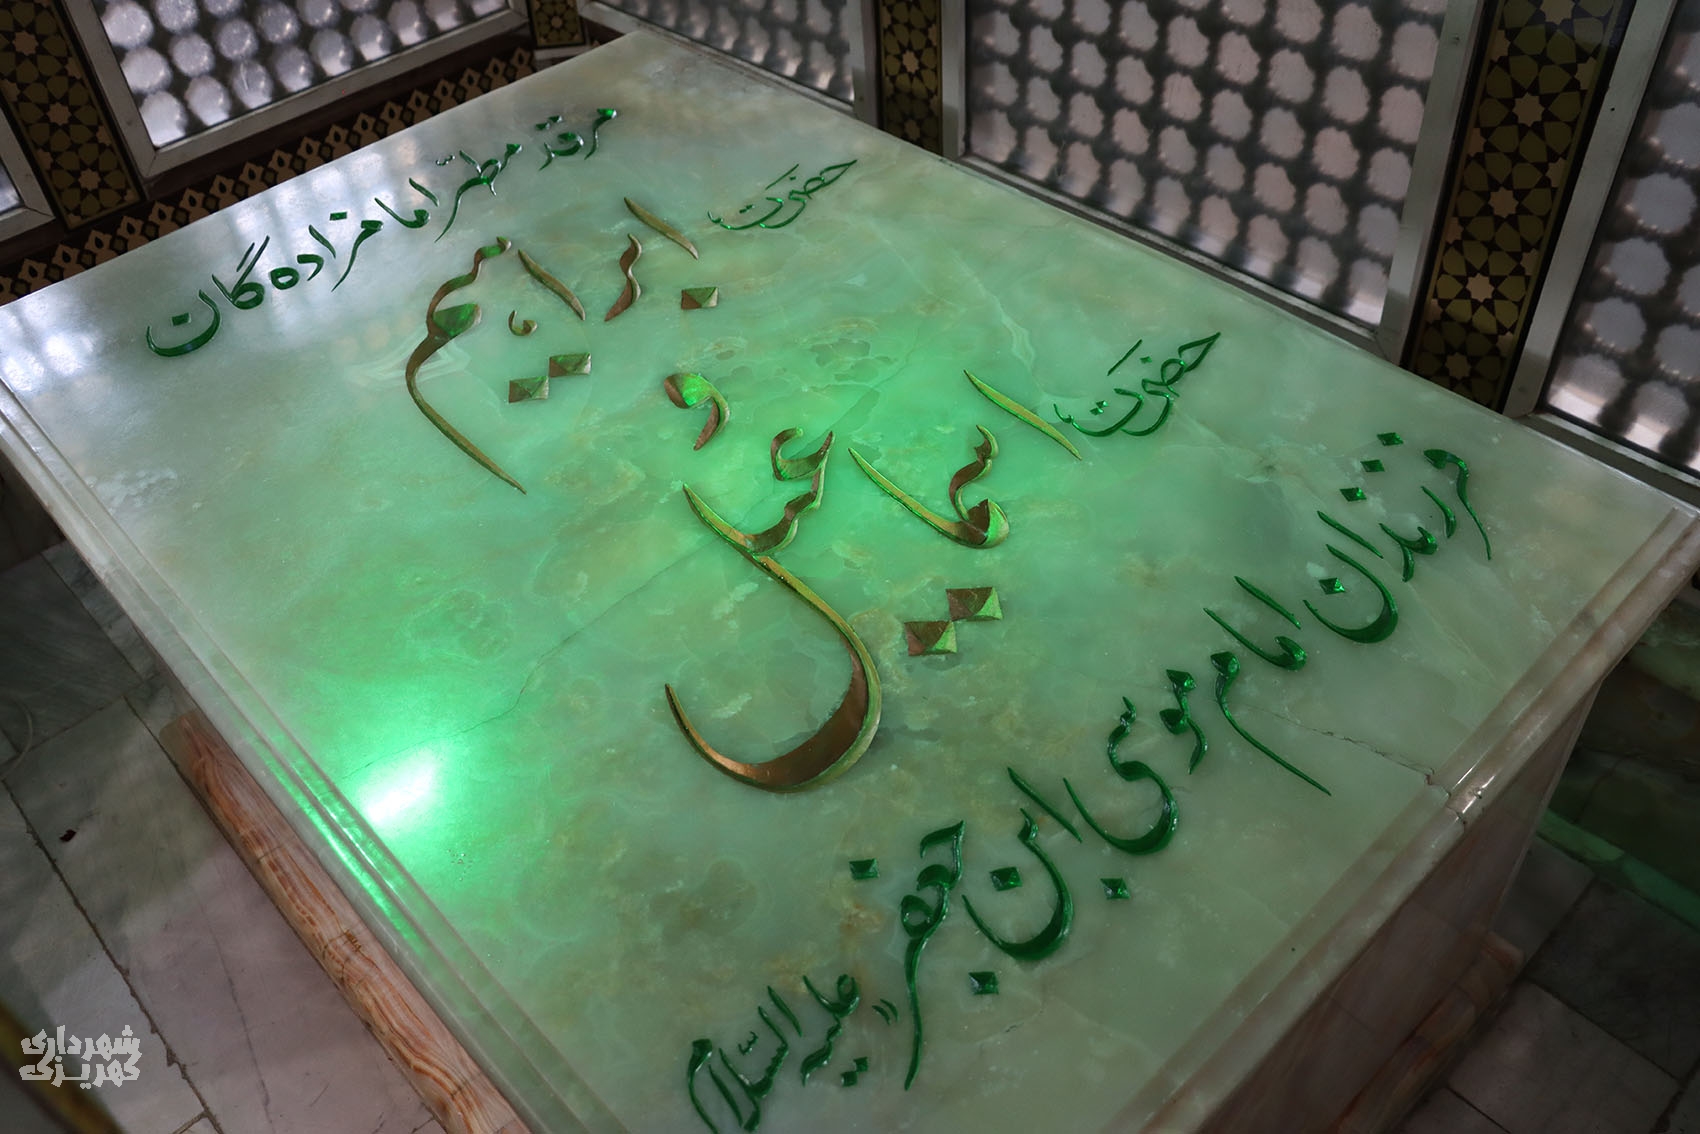 مرقد مطهّر امامزاده گان
حضرت ابراهیم
و
حضرت اسماعیل
فرزندان امام موسی ابن جعفر علیه السّلام
شهرداری
کهریزک